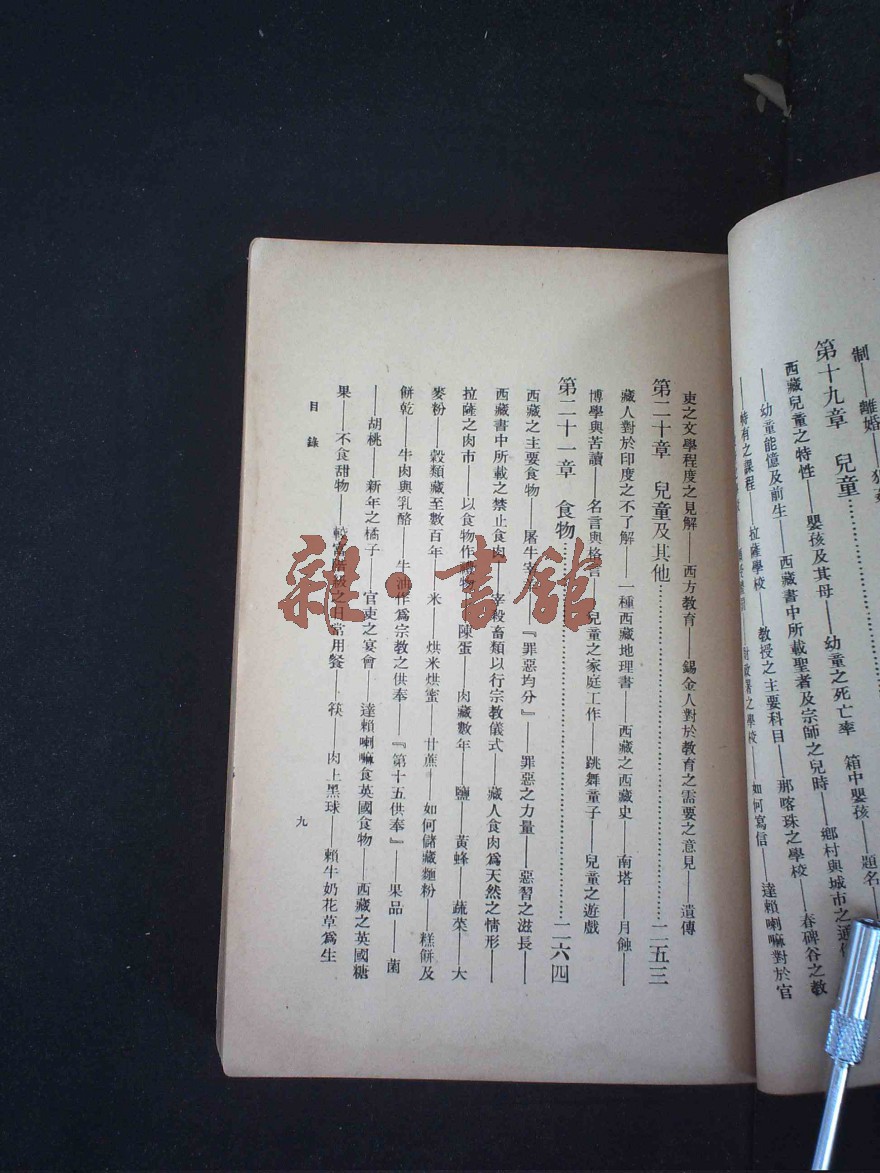 制——離婚——
第十九章　兒童
西藏兒童之特性——嬰孩及其母——幼童之死亡率　箱中嬰孩——題名
——幼童能憶及前生——西藏書中所載聖者及宗師之兒時——鄉村與城市之
特有之課程——拉薩學校——教授之主要科目——那喀珠之學校——春碑谷之教
之學校——如何寫信——達賴喇嘛對於官
吏之文學程度之見解——西方教育——錫金人對於教育之需要之意見——遺傳
第二十章　兒童及其他……二五三
藏人對於印度之不了解——一種西藏地理書——西藏之西藏史——南塔——月蝕——
博學與苦讀——名言與格言——兒童之家庭工作——跳舞童子——兒童之遊戲
第二十一章　食物……二六四
西藏之主要食物——屠牛宰——『罪惡均分』——罪惡之力量——惡習之滋長——
西藏書中所載之禁止食肉——宰殺畜類以行宗教儀式——藏人食肉爲天然之情形——
拉薩之肉市——以食物作禮物——陳蛋——肉藏數年——鹽——黃蜂——蔬菜——大
麥粉——穀類藏至數百年——米——烘米烘蜜——甘蔗——如何儲藏麵粉　糕餅及
餅乾——牛肉與乳酪——牛油作爲宗教之供奉——『第十五供奉』——果品——菌
——胡桃——新年之橘子——官吏之宴會——達賴喇嘛食英國食物——西藏之英國糖
果——不食甜物——較富階級之日常用餐——筷——肉上黑球——賴牛奶花草爲生
目錄
九
雜·書館